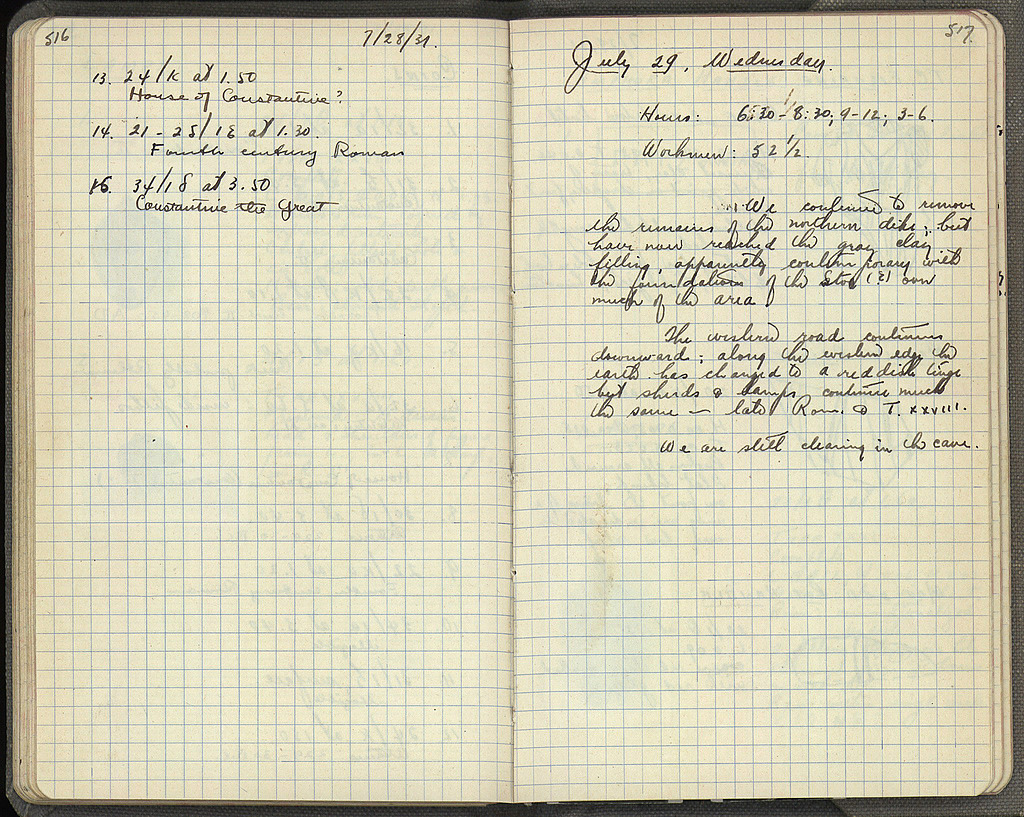 516
7/28/31.
13. 24/K at 1.50
House of Constantine?
14. 21-25/ΙΕ at 1.30.
Fourth century Roman
15. 34/ at 3.50
Constantine the Great
517.
July 29, Wednesday.
Hours: 6:30-8:30; 9-12; 3-6.
Workmen: 52 1/2.
We continue to remove
the remains of the northern dike; but
have now reached the gray clay
filling, apparently contemporary with
the foundations of the Stoa (?) over
much of the area.
The western road continues
downward; along the western edge the
earth has changed to a reddish tinge
but sherds & lamps continue much
the same — late Rom. & T. XXVIII.
We are still clearing in the cave.